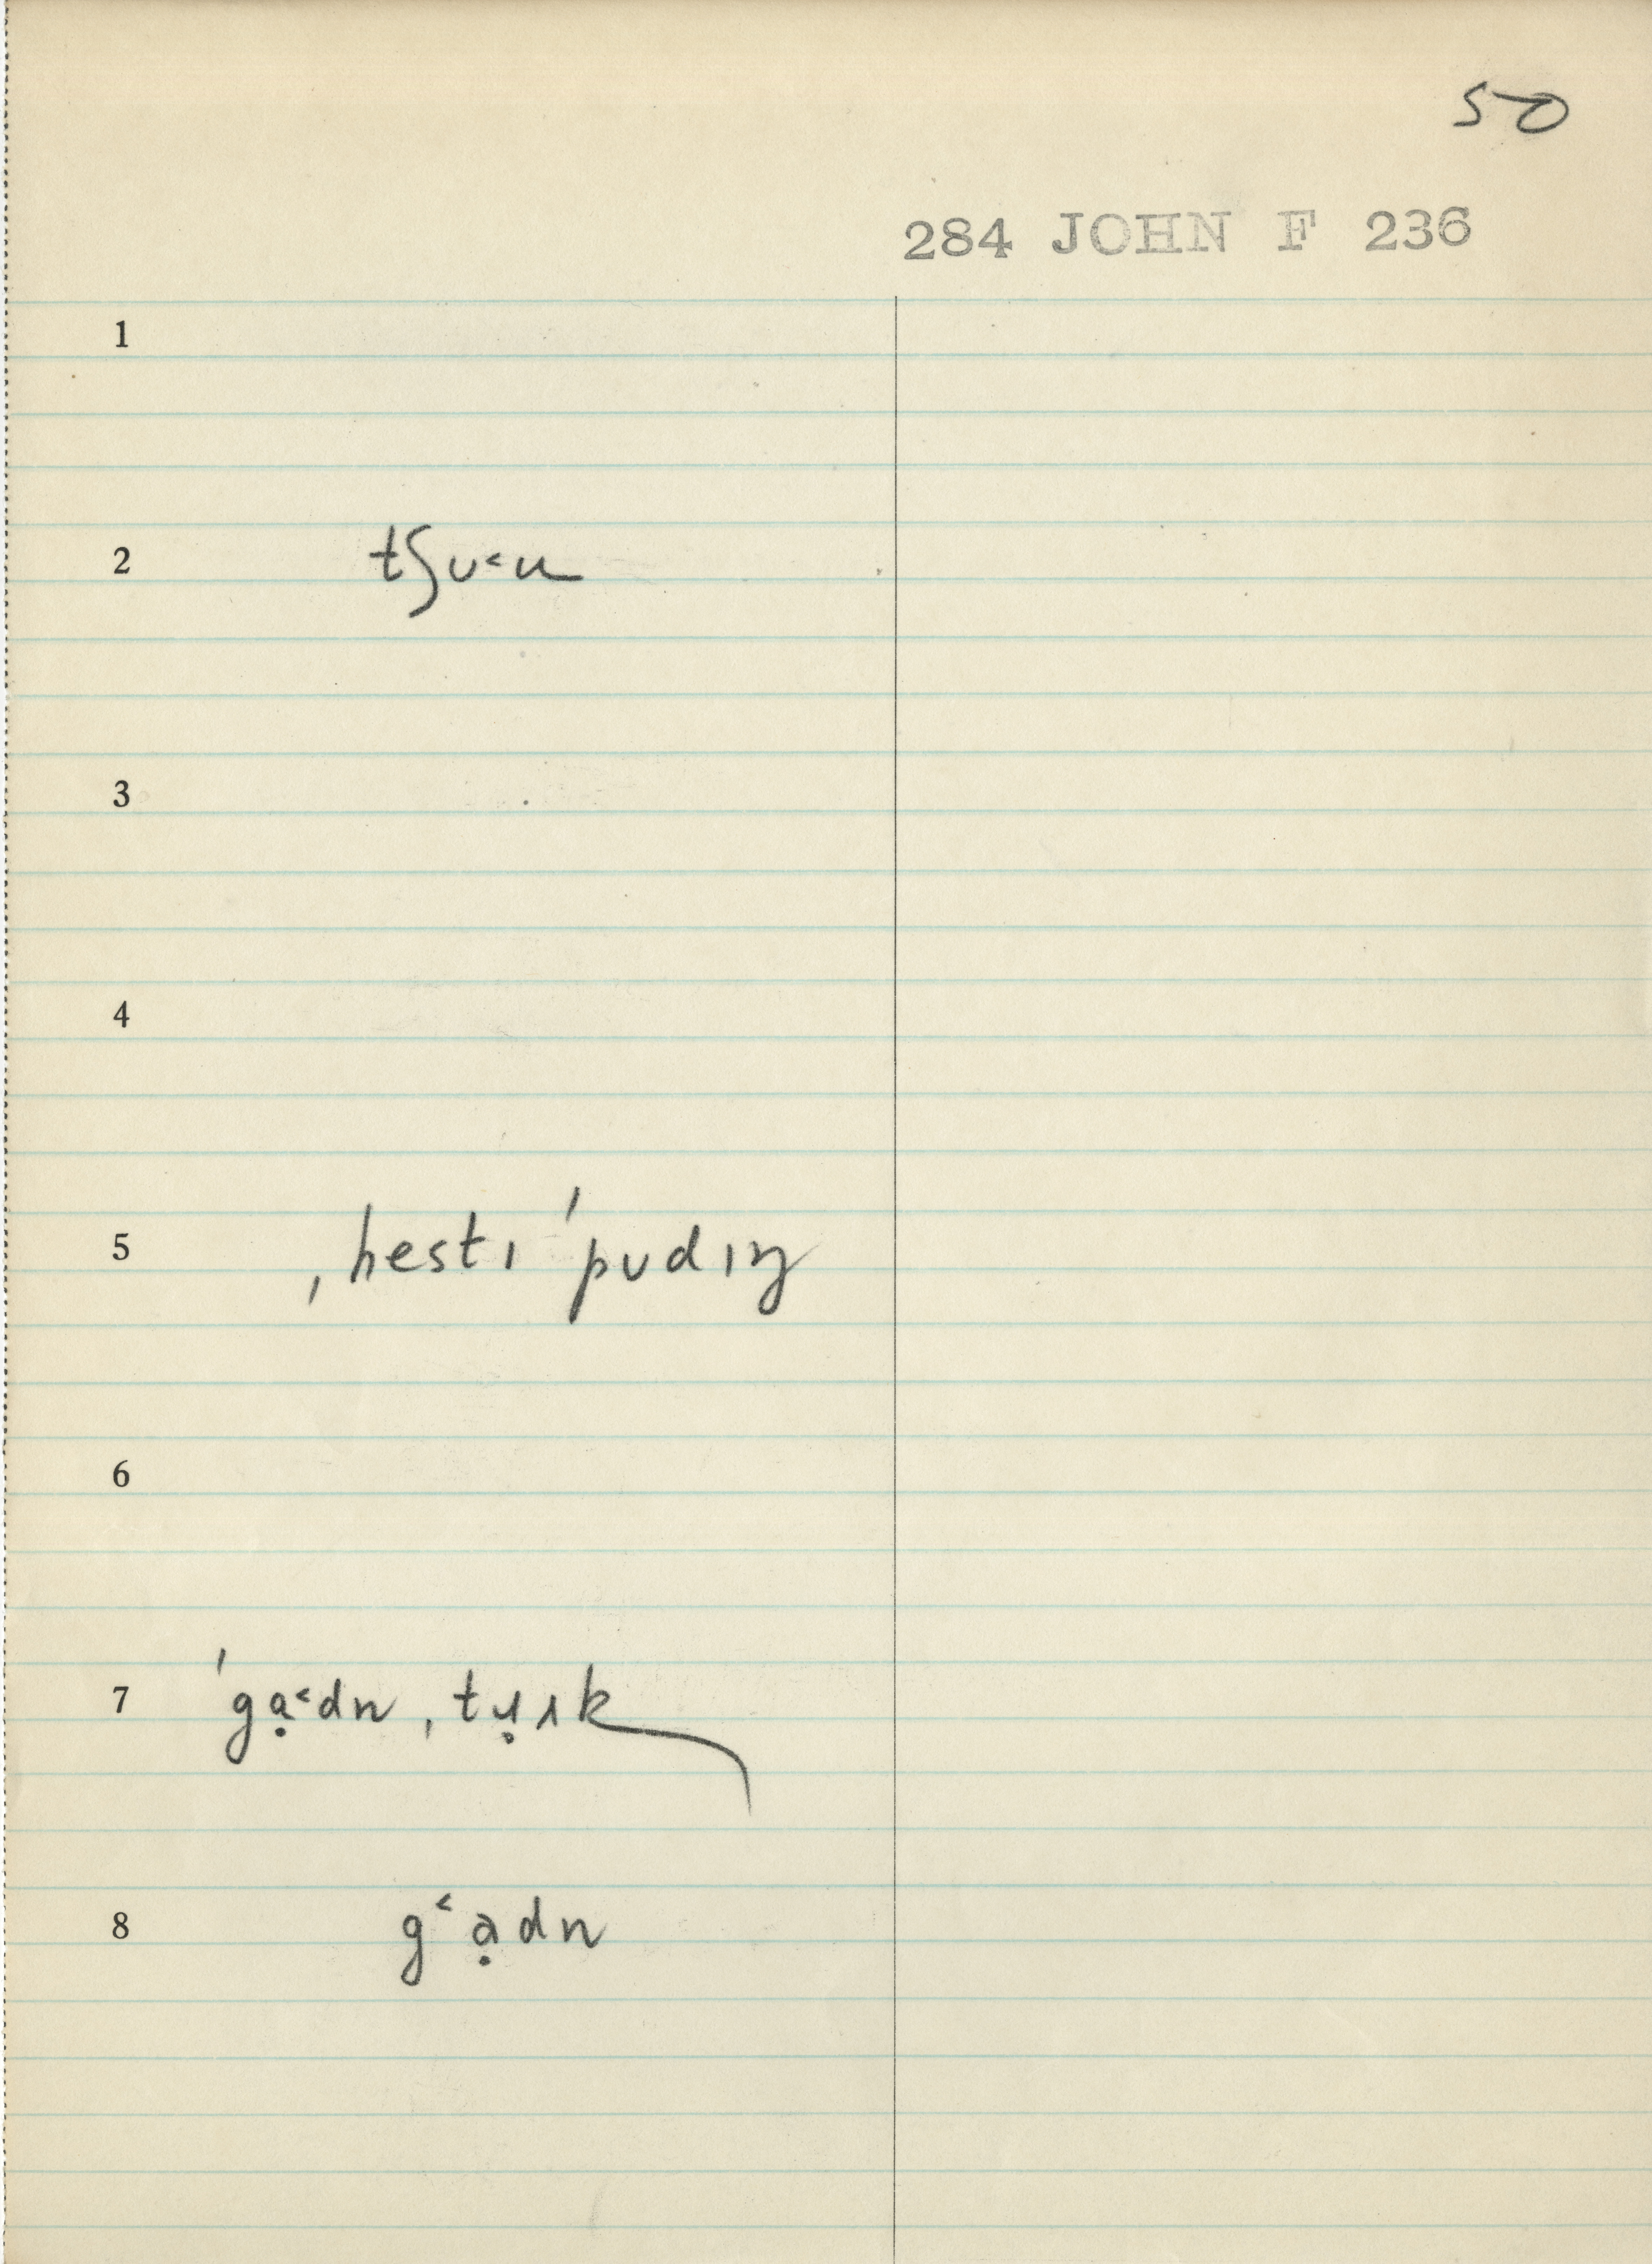 50
284 JOHN F 236
1
2 tʃʊ˂u
3
4
5 ˌhestɪ ˈpʊdɪŋ
6
7 ˈgạ˂dn ˌtṛʌk
8 g˂ạdn